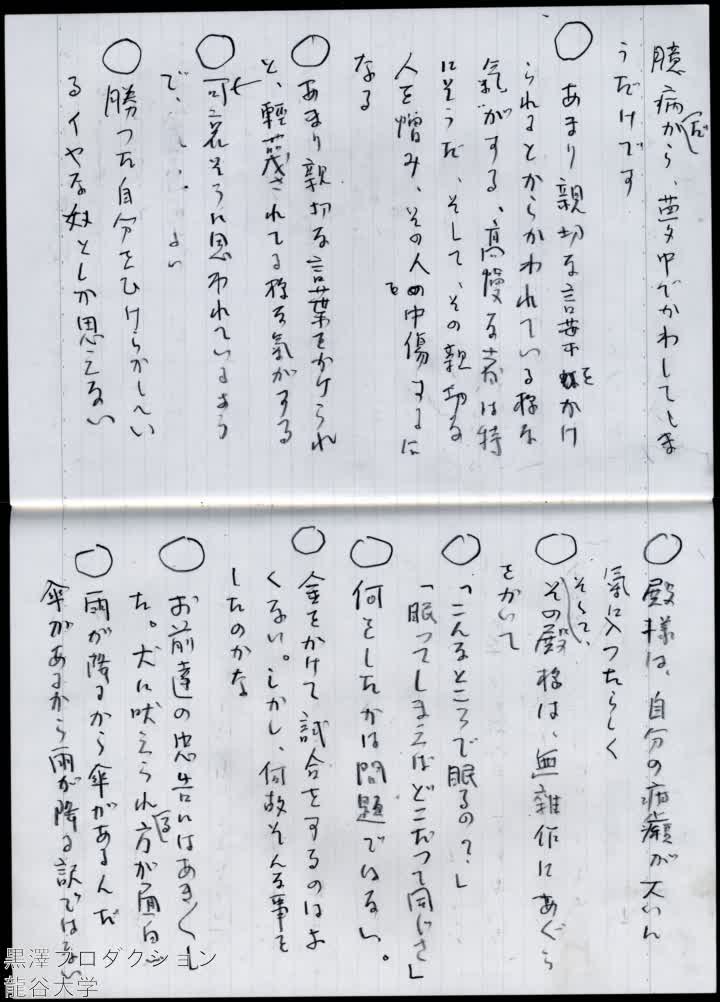 臆病だから、夢中でかわしてしま
うだけです
○ あまり親切な言葉をかけ
られるとからかわれている様な
氣がする、高慢な者は特
にそうだ、そして、その親切な
人を憎み、その人を中傷するに
なる
○ あまり親切な言葉をかけられ
と、輕蔑されてる様な氣がする
○ 可哀そうに思われているよう
で、
○ 勝つた自分をひけらかしてい
るイヤな奴としか思えない
○ 殿様は、自分の病癪が大いに
氣に入つたらしく
そして、
○ その殿様は、無雑作にあぐら
をかいて
○ 「こんなところで眠るの?」
「眠つてしまえばどこだつて同じさ」
○ 何をしたかは問題ではない。
○ 金をかけて試合をするのはよ
くない。しかし、何故そんな事を
したのかな
○ お前達の忠告にはあき〱し
た。犬に吠えられる方が面白い
○ 雨が降るから傘があるんだ
傘があるから雨が降る訳ではない
黒澤プロダクション
龍谷大学